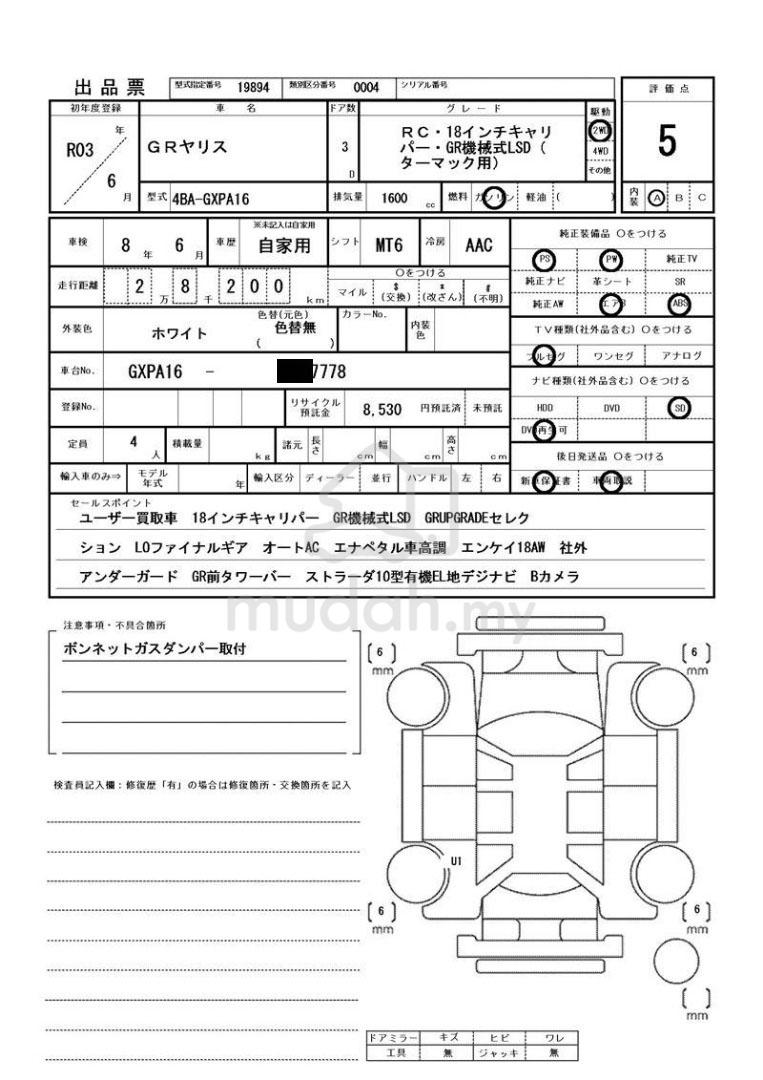 出品票 型式指定番号 19894 類別区分番号 0004 シリアル番号
評価点
5
初年度登録 車名 ドア数 グレード 駆動
R03 年 6 月
GRヤリス
3 D
RC・18インチキャリ
パー・GR機械式LSD（
ターマック用）
2WD
4WD
その他
型式 4BA-GXPA16 排気量 1600 cc 燃料 ガソリン 軽油 ( )
内装 A B C
車検 8年 6月 車歴 ※未記入は自家用 自家用 シフト MT6 冷房 AAC
走行距離 2万 8千 200 km
○をつける
マイル $(交換) *(改ざん) #(不明)
外装色 ホワイト 色替(元色) 色替無 ( ) カラーNo. 内装色
車台No. GXPA16 - 7778
登録No. リサイクル預託金 8,530 円預託済 未預託
定員 4人 積載量 kg 諸元 長さ cm 幅 cm 高さ cm
輸入車のみ⇒ モデル年式 年 輸入区分 ディーラー 並行 ハンドル 左 右
純正装備品 ○をつける
PS PW 純正TV
純正ナビ 革シート SR
純正AW エアB ABS
TV種類(社外品含む) ○をつける
フルセグ ワンセグ アナログ
ナビ種類(社外品含む) ○をつける
HDD DVD SD
DVD再生可
後日発送品 ○をつける
新車保証書 車両取説
セールスポイント
ユーザー買取車 18インチキャリパー GR機械式LSD GRUPGRADEセレク
ション LOファイナルギア オートAC エナペタル車高調 エンケイ18AW 社外
アンダーガード GR前タワーバー ストラーダ10型有機EL地デジナビ Bカメラ
mudah.my
注意事項・不具合箇所
ボンネットガスダンパー取付
[ 6 ] mm
[ 6 ] mm
検査員記入欄：修復歴「有」の場合は修復箇所・交換箇所を記入
U1
[ 6 ] mm
[ 6 ] mm
[ ] mm
ドアミラー キズ ヒビ ワレ
工具 無 ジャッキ 無